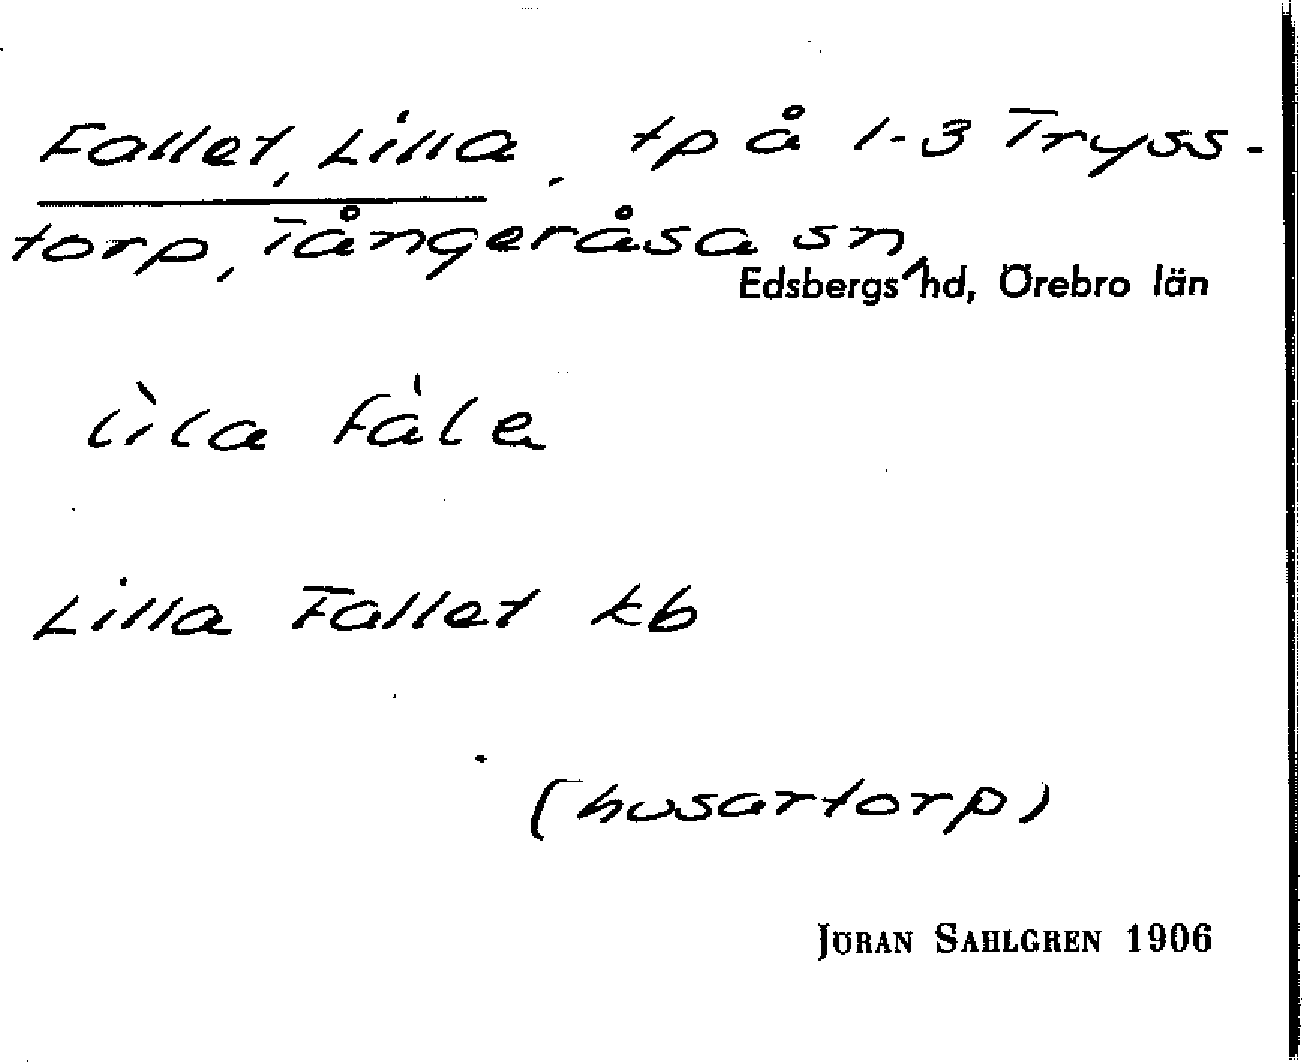 Fallet, Lilla, tp å 1-3 Tryss-
torp, Tångeråsa sn,
Edsbergs hd, Örebro län
lìla fàle
Lilla Fallet kb
(husartorp)
JÖRAN SAHLGREN 1906